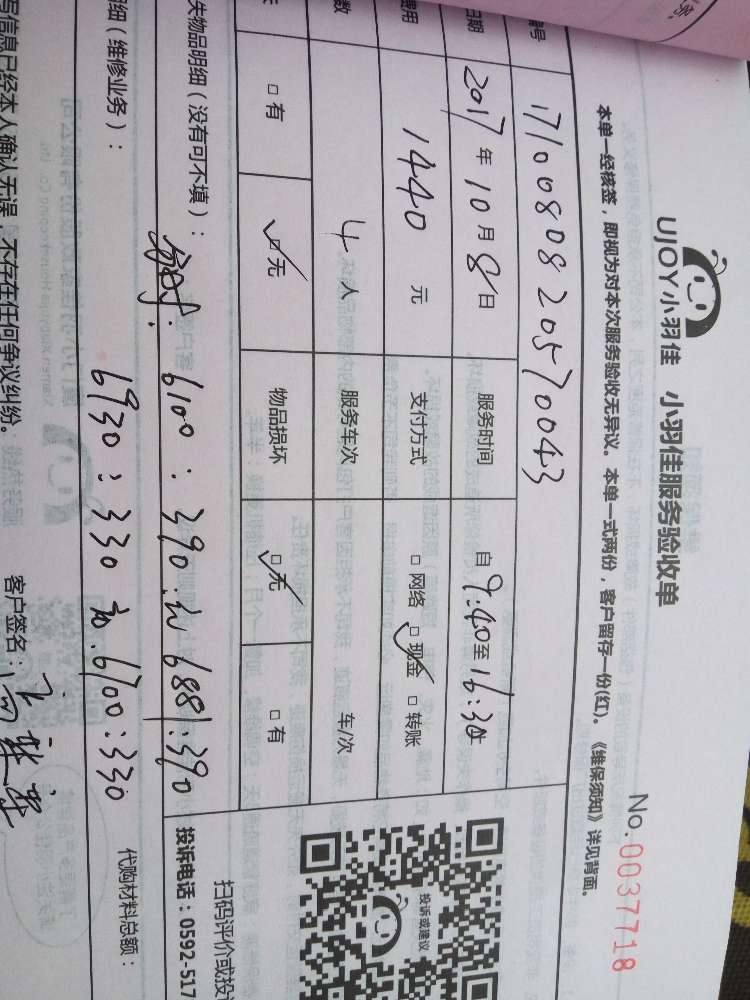 UJOY小羽佳 小羽佳服务验收单
No.0037718
本单一经核签，即视为对本次服务验收无异议。本单一式两份，客户留存一份(红)。《维保须知》详见背面。
编号 17100808205710043
日期 2017年10月8日 服务时间 自9:40至16:30止
费用 1440元 支付方式 □网络 ☑现金 □转账
数 4人 服务车次 车/次
□有 ☑无 物品损坏 ☑无 □有
失物品明细（没有可不填）：
6100：390： 6881：390
细（维修业务）：
6930：330 6700：330
代购材料总额：
写信息已经本人确认无误，不存在任何争议纠纷。
客户签名：
投诉或建议
扫码评价或投
投诉电话：0592-517